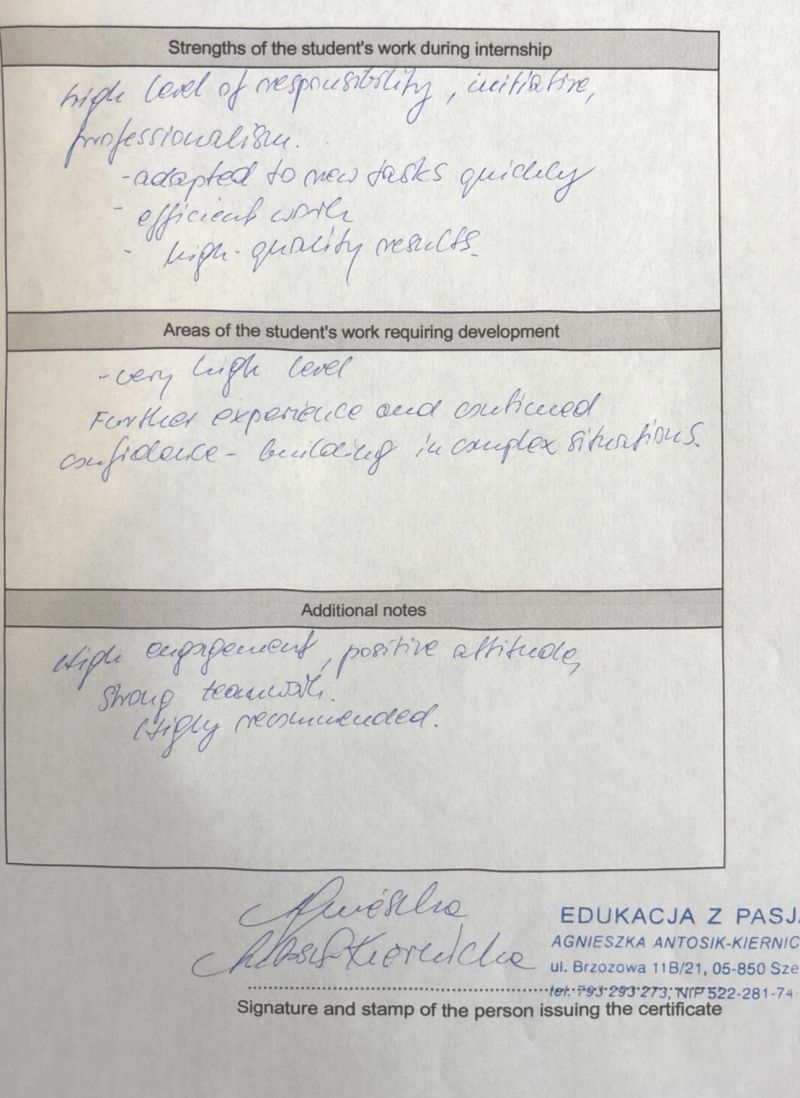 Strengths of the student's work during internship
High level of responsibility, initiative,
professionalism.
- adapted to new tasks quickly
- efficient work
- high-quality results.
Areas of the student's work requiring development
- very high level
Further experience and continued
confidence-building in complex situations.
Additional notes
High engagement, positive attitude,
strong teamwork.
Highly recommended.
Agnieszka
Antosik-Kiernicka
EDUKACJA Z PASJ
AGNIESZKA ANTOSIK-KIERNIC
ul. Brzozowa 11B/21, 05-850 Sze
tel. 793 293 273, NIP 522-281-74-
Signature and stamp of the person issuing the certificate